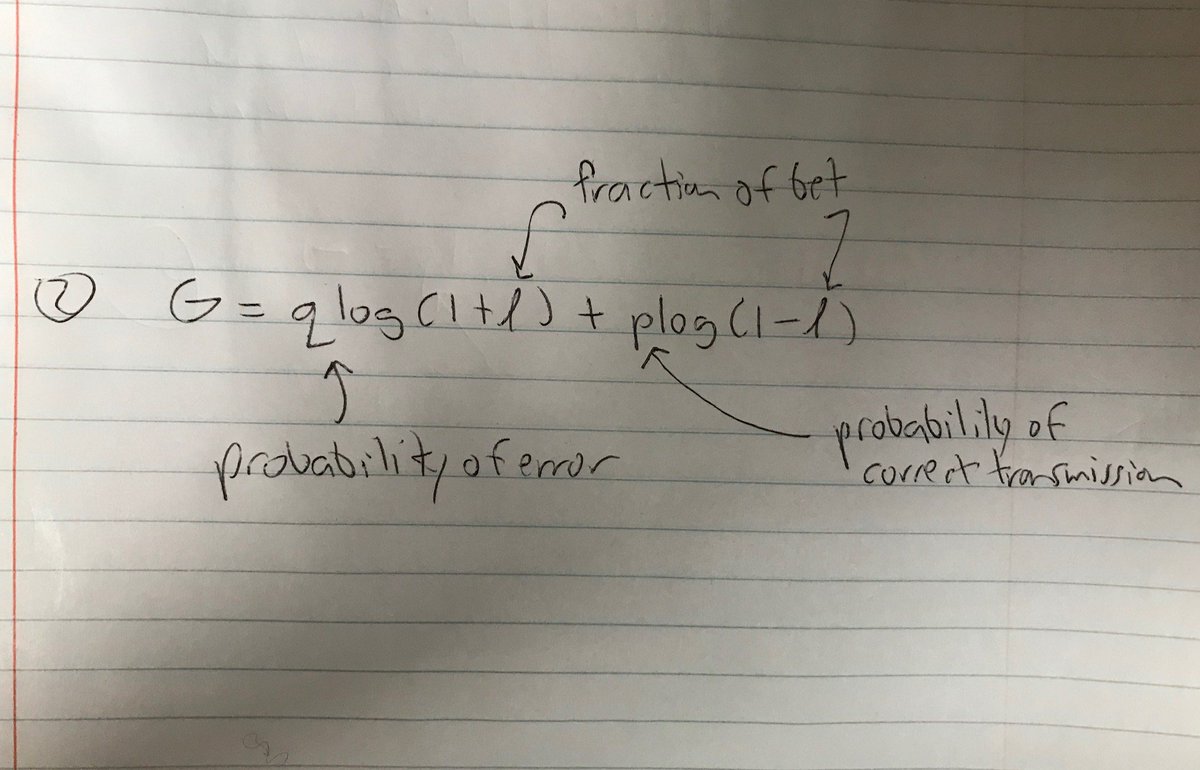 fraction of bet
② G = q log(1+l) + plog(1-l)
probability of error
probability of
correct transmission